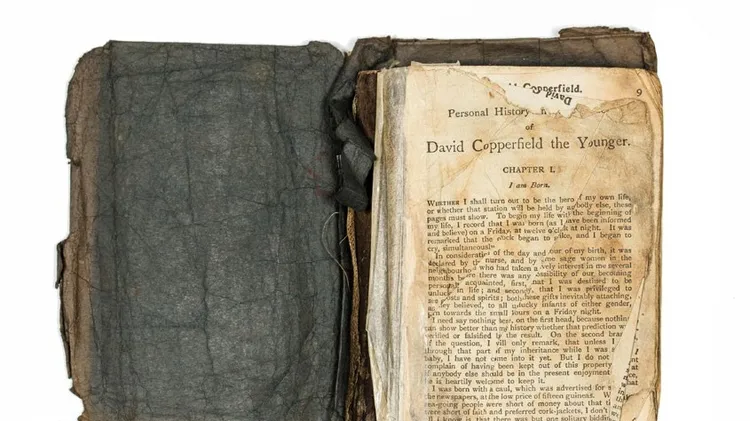 Copperfield.
David
9
Personal History
of
David Copperfield the Younger.
CHAPTER I.
I am Born.
WHETHER I shall turn out to be the hero of my own life,
or whether that station will be held by anybody else, these
pages must show. To begin my life with the beginning of
my life, I record that I was born (as I have been informed
and believe) on a Friday, at twelve o'clock at night. It was
remarked that the clock began to strike, and I began to
cry, simultaneously.
In consideration of the day and hour of my birth, it was
declared by the nurse, and by some sage women in the
neighbourhood who had taken a lively interest in me several
months before there was any possibility of our becoming
personally acquainted, first, that I was destined to be
unlucky in life; and secondly, that I was privileged to
see ghosts and spirits; both these gifts inevitably attaching,
as they believed, to all unlucky infants of either gender,
born towards the small hours on a Friday night.
I need say nothing here, on the first head, because nothing
can show better than my history whether that prediction was
verified or falsified by the result. On the second branch
of the question, I will only remark, that unless I
through that part of my inheritance while I was
baby, I have not come into it yet. But I do not
complain of having been kept out of this property
if anybody else should be in the present enjoyment
he is heartily welcome to keep it.
I was born with a caul, which was advertised for
the newspapers, at the low price of fifteen guineas. W
sea-going people were short of money about that
were short of faith and preferred cork-jackets, I don't
all I know is, that there was but one solitary bidding